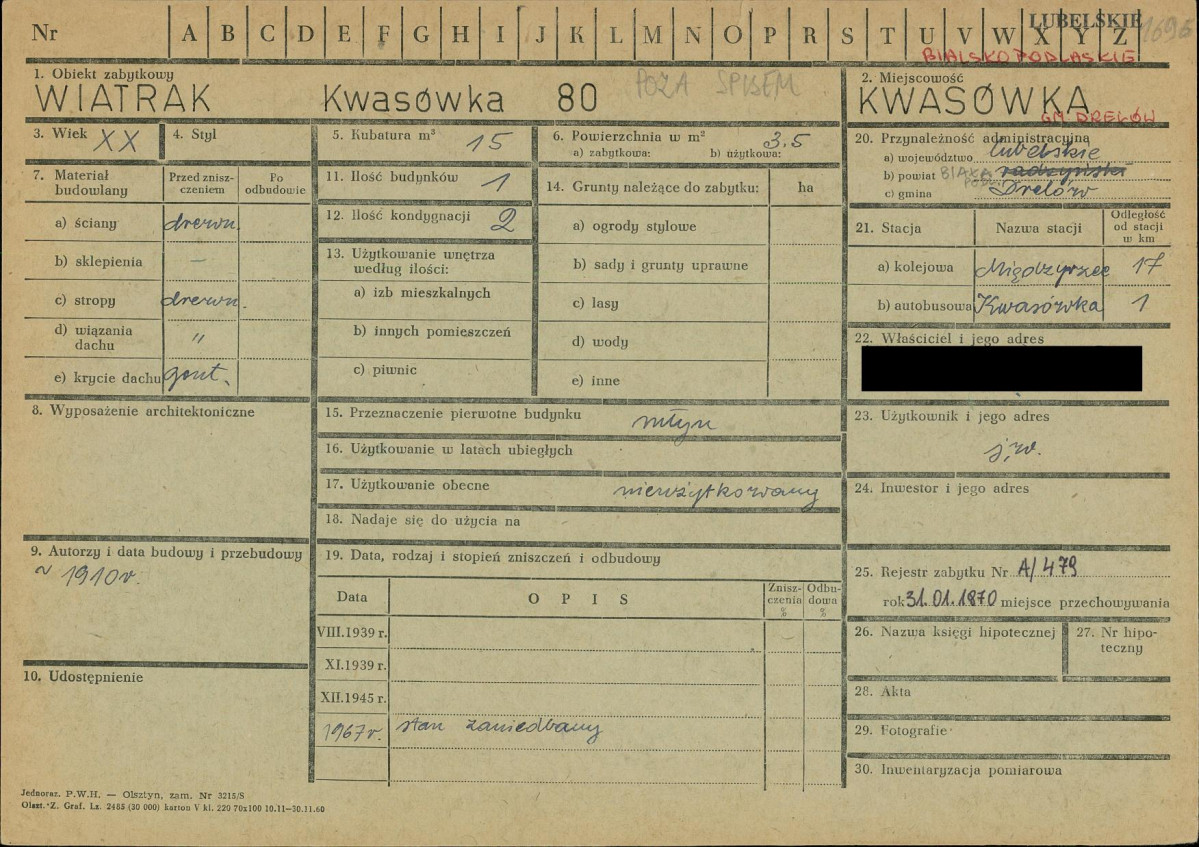 Nr A B C D E F G H I J K L M N O P R S T U V W X Y Z
LUBELSKIE
BIALSKOPODLASKIE
1. Obiekt zabytkowy
WIATRAK Kwasówka 80
POZA SPISEM
2. Miejscowość
KWASÓWKA
GM. DRELÓW
3. Wiek XX
4. Styl
5. Kubatura m³ 15
6. Powierzchnia w m² 3,5
a) zabytkowa: b) użytkowa:
20. Przynależność administracyjna
a) województwo lubelskie
b) powiat BIAŁA radzyński
c) gmina Drelów
7. Materiał budowlany
Przed znisz-
czeniem
Po
odbudowie
a) ściany drewn.
b) sklepienia —
c) stropy drewn.
d) wiązania
dachu "
e) krycie dachu gont.
11. Ilość budynków 1
12. Ilość kondygnacji 2
13. Użytkowanie wnętrza
według ilości:
a) izb mieszkalnych
b) innych pomieszczeń
c) piwnic
14. Grunty należące do zabytku: ha
a) ogrody stylowe
b) sady i grunty uprawne
c) lasy
d) wody
e) inne
21. Stacja
Nazwa stacji
Odległość
od stacji
w km
a) kolejowa Międzyrzec 17
b) autobusowa Kwasówka 1
22. Właściciel i jego adres
8. Wyposażenie architektoniczne
15. Przeznaczenie pierwotne budynku młyn
16. Użytkowanie w latach ubiegłych
17. Użytkowanie obecne nieużytkowany
18. Nadaje się do użycia na
23. Użytkownik i jego adres
j.w.
24. Inwestor i jego adres
9. Autorzy i data budowy i przebudowy
~ 1910r.
10. Udostępnienie
19. Data, rodzaj i stopień zniszczeń i odbudowy
Data OPIS
Znisz-
czenia
%
Odbu-
dowa
%
VIII.1939 r.
XI.1939 r.
XII.1945 r.
1967r. stan zaniedbany
25. Rejestr zabytku Nr A/479
rok 31.01.1870 miejsce przechowywania
26. Nazwa księgi hipotecznej
27. Nr hipo-
teczny
28. Akta
29. Fotografie
30. Inwentaryzacja pomiarowa
Jednoraz. P.W.H. — Olsztyn, zam. Nr 3215/S
Olszt. Z. Graf. Lz. 2485 (30 000) karton V kl. 220 70x100 10.11—30.11.60